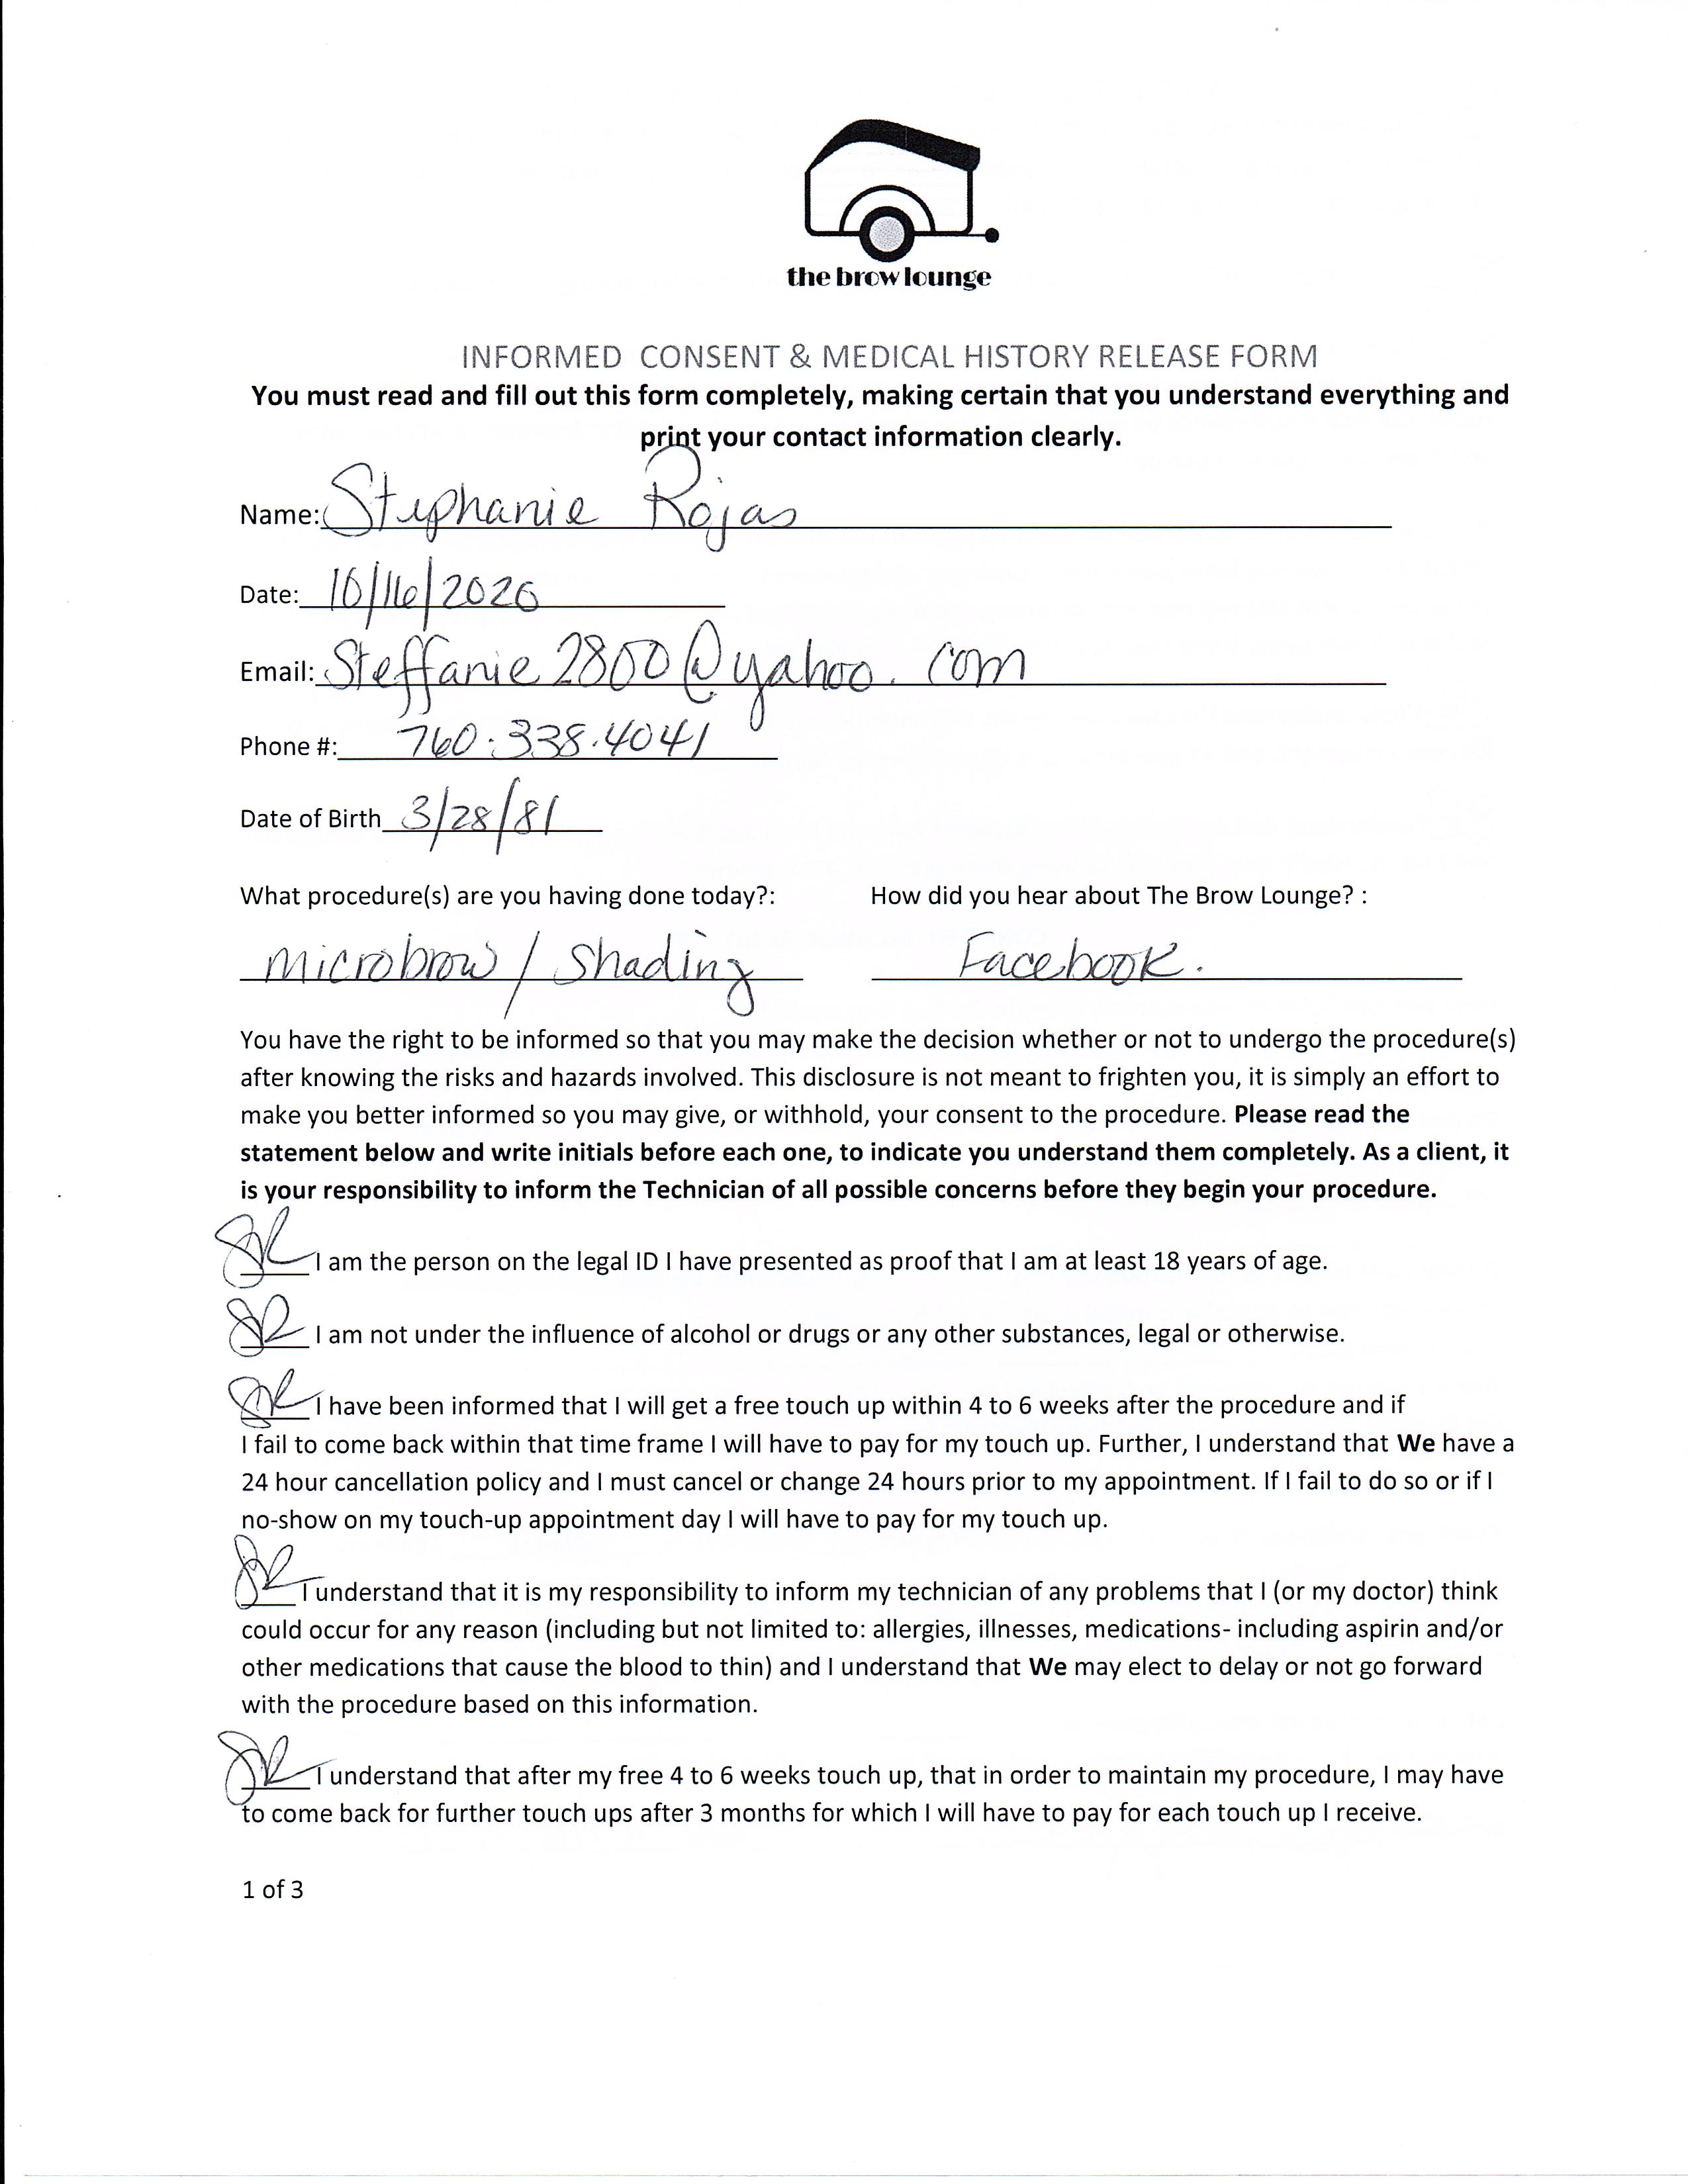 the brow lounge
INFORMED CONSENT & MEDICAL HISTORY RELEASE FORM
You must read and fill out this form completely, making certain that you understand everything and
print your contact information clearly.
Name: Stephanie Rojas
Date: 10/16/2020
Email: Steffanie2800@yahoo.com
Phone #: 760.338.4041
Date of Birth 3/28/81
What procedure(s) are you having done today?: How did you hear about The Brow Lounge? :
microbrow / shading Facebook.
You have the right to be informed so that you may make the decision whether or not to undergo the procedure(s)
after knowing the risks and hazards involved. This disclosure is not meant to frighten you, it is simply an effort to
make you better informed so you may give, or withhold, your consent to the procedure. Please read the
statement below and write initials before each one, to indicate you understand them completely. As a client, it
is your responsibility to inform the Technician of all possible concerns before they begin your procedure.
SR I am the person on the legal ID I have presented as proof that I am at least 18 years of age.
SR I am not under the influence of alcohol or drugs or any other substances, legal or otherwise.
SR I have been informed that I will get a free touch up within 4 to 6 weeks after the procedure and if
I fail to come back within that time frame I will have to pay for my touch up. Further, I understand that We have a
24 hour cancellation policy and I must cancel or change 24 hours prior to my appointment. If I fail to do so or if I
no-show on my touch-up appointment day I will have to pay for my touch up.
SR I understand that it is my responsibility to inform my technician of any problems that I (or my doctor) think
could occur for any reason (including but not limited to: allergies, illnesses, medications- including aspirin and/or
other medications that cause the blood to thin) and I understand that We may elect to delay or not go forward
with the procedure based on this information.
SR I understand that after my free 4 to 6 weeks touch up, that in order to maintain my procedure, I may have
to come back for further touch ups after 3 months for which I will have to pay for each touch up I receive.
1 of 3